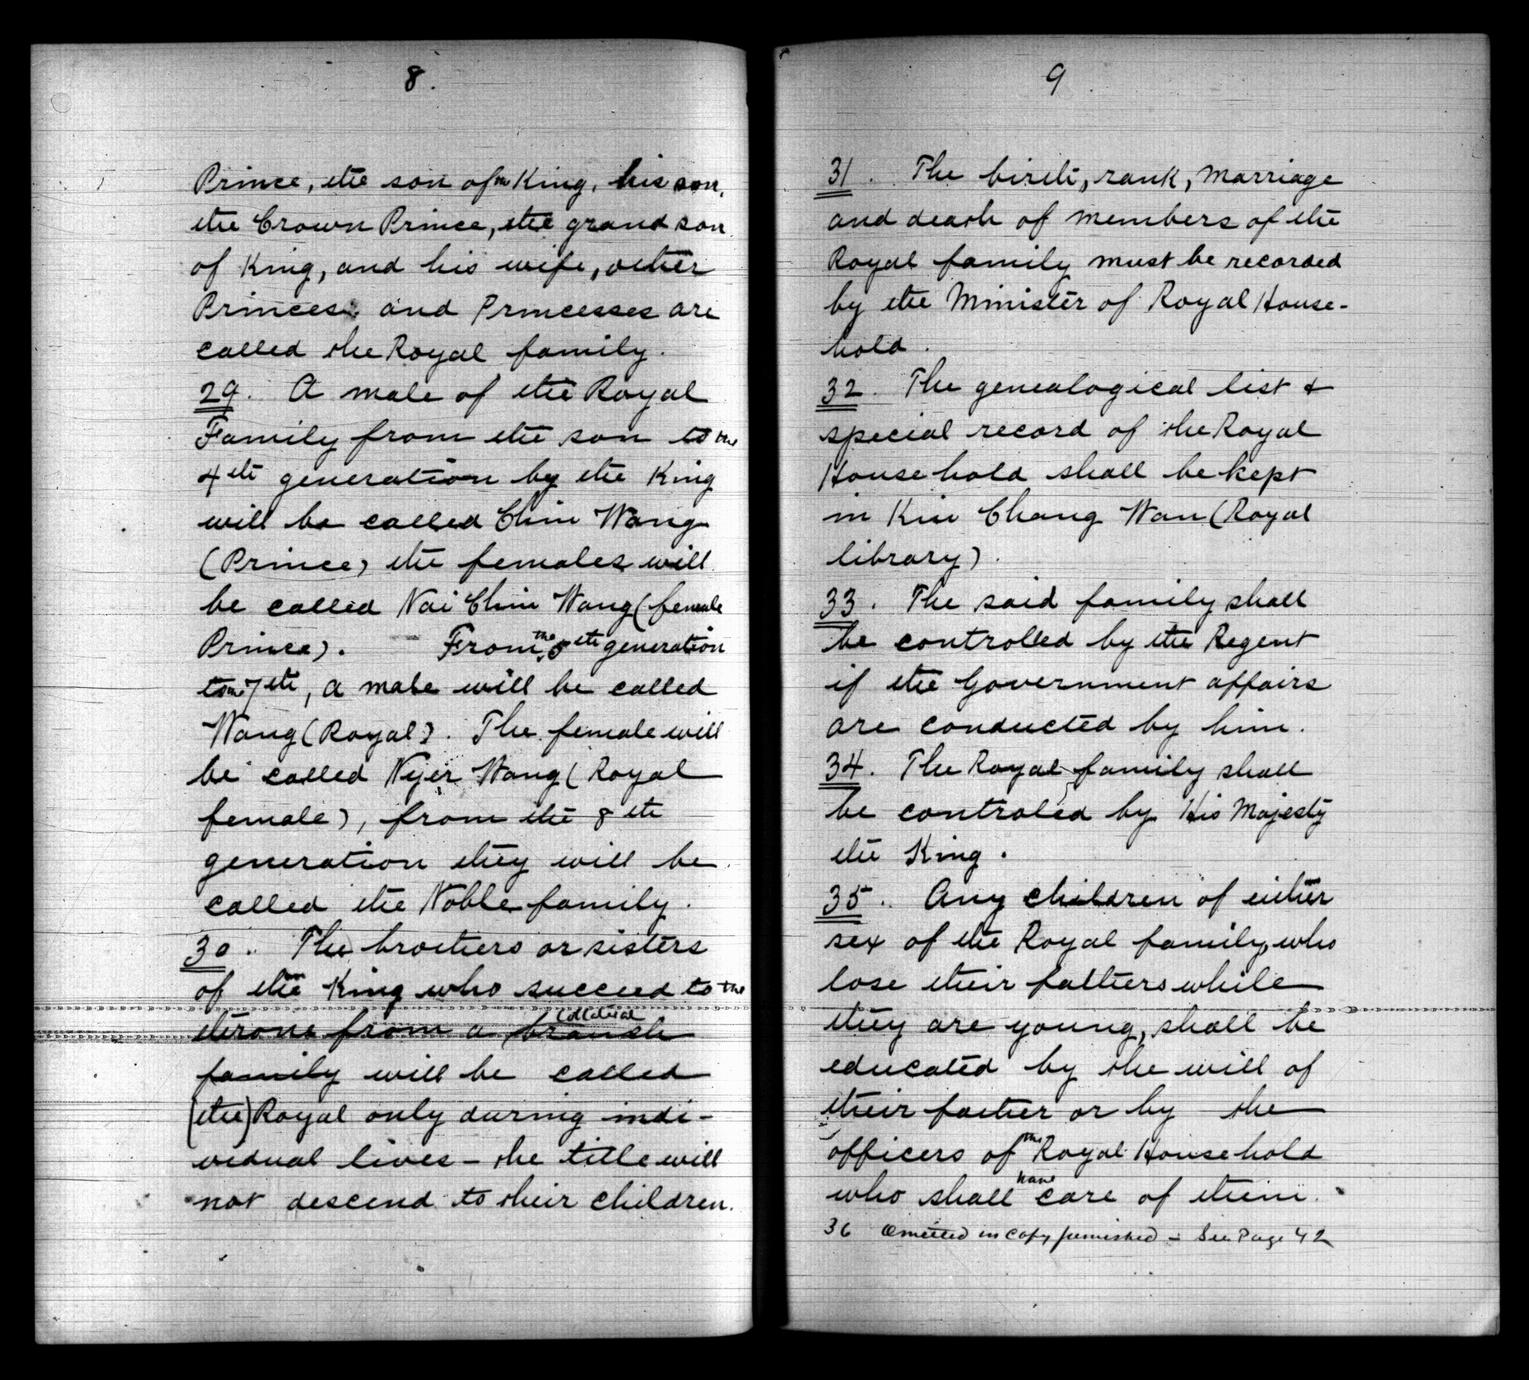 8.
Prince, the son of a King, his son,
the Crown Prince, the grand son
of King, and his wife, other
Princes, and Princesses are
called the Royal family.
29. A male of the Royal
Family from the son to the
4th generation by the King
will be called Chin Wang
(Prince) the females will
be called Nai Chin Wang (female
Prince). From the 5th generation
to the 7th, a male will be called
Wang (Royal). The female will
be called Nyer Wang (Royal
female), from the 8th
generation they will be
called the Noble family.
30. The brothers or sisters
of the King who succeed to the
throne from a collateral branch
family will be called
(the) Royal only during indi-
vidual lives - the title will
not descend to their children.
9
31. The birth, rank, marriage
and death of members of the
Royal family must be recorded
by the Minister of Royal House-
hold.
32. The genealogical list &
special record of the Royal
Household shall be kept
in Kin Chang Wan (Royal
library).
33. The said family shall
be controlled by the Regent
if the Government affairs
are conducted by him.
34. The Royal family shall
be controled by His Majesty
the King.
35. Any children of either
sex of the Royal family, who
lose their fathers while
they are young, shall be
educated by the will of
their father or by the
officers of the Royal Household
who shall have care of them.
36 Omitted in copy furnished - See Page 42